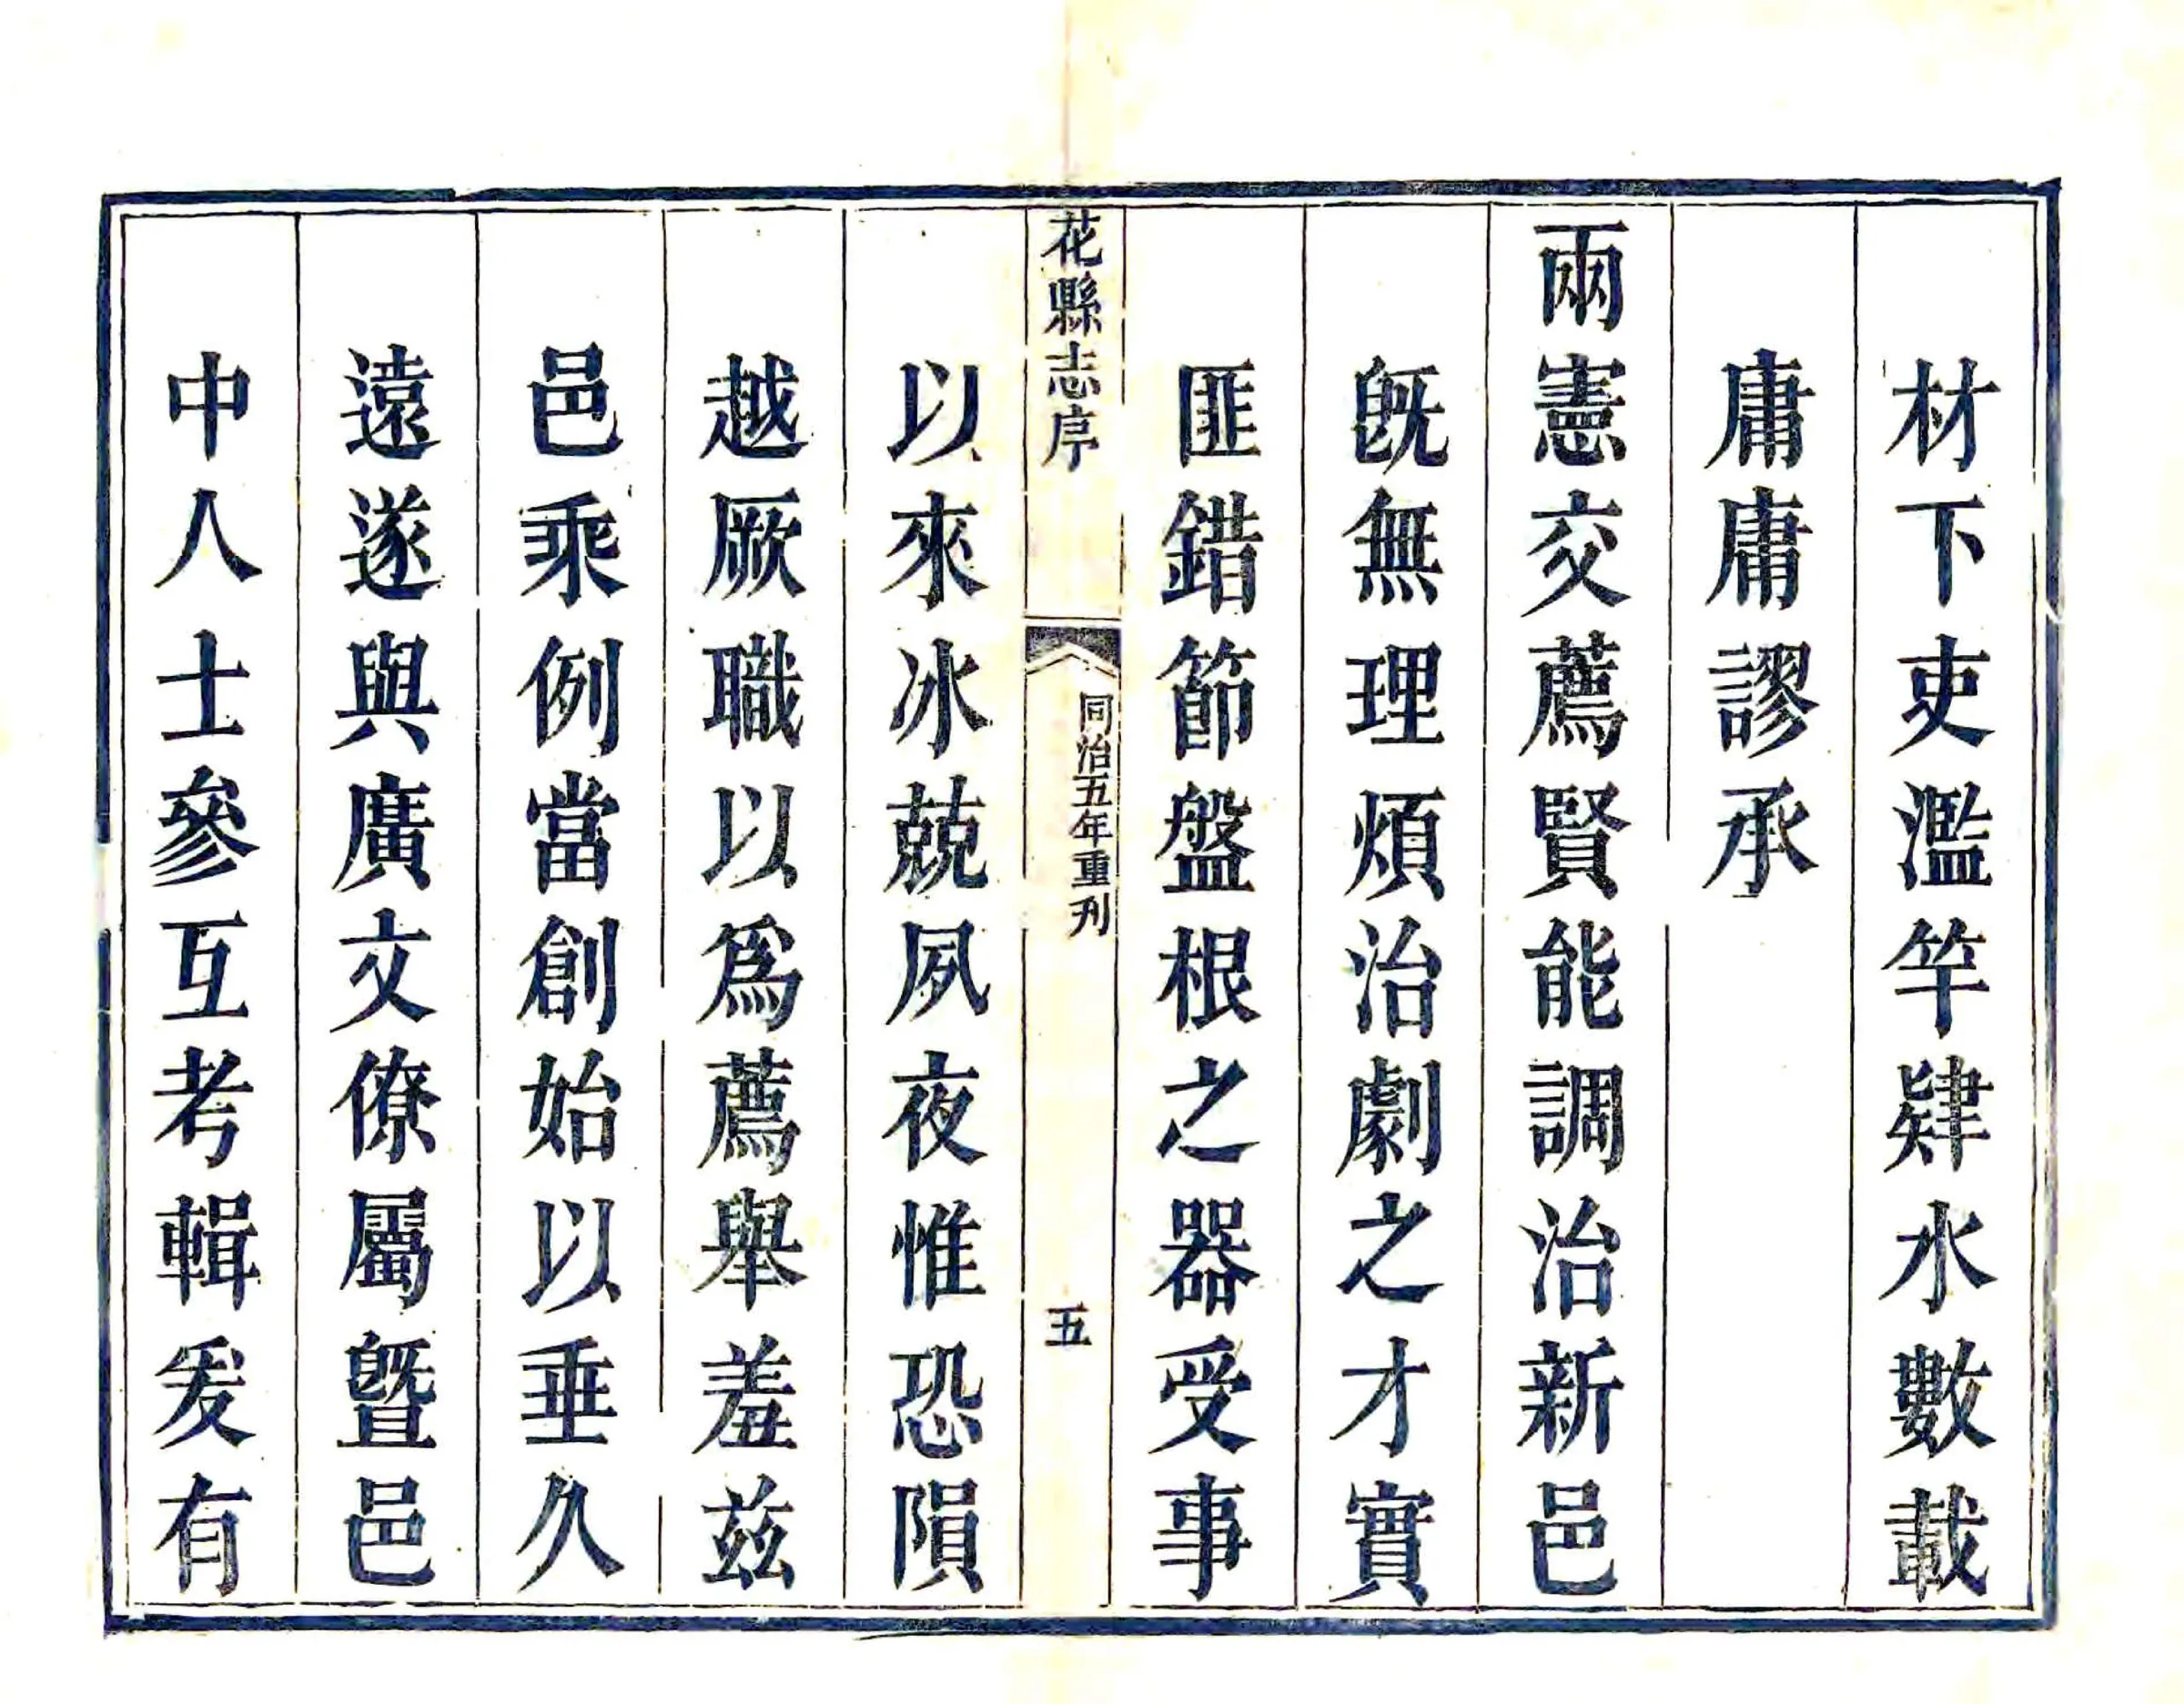 材下吏濫竽肄水數載
庸庸謬承
兩憲交薦賢能調治新邑
旣無理煩治劇之才實
匪錯節盤根之器受事
花縣志序
同治五年重刋
五
以來冰兢夙夜惟恐隕
越厥職以爲薦舉羞茲
邑乘例當創始以垂久
遠遂與廣文僚屬曁邑
中人士參互考輯爰有